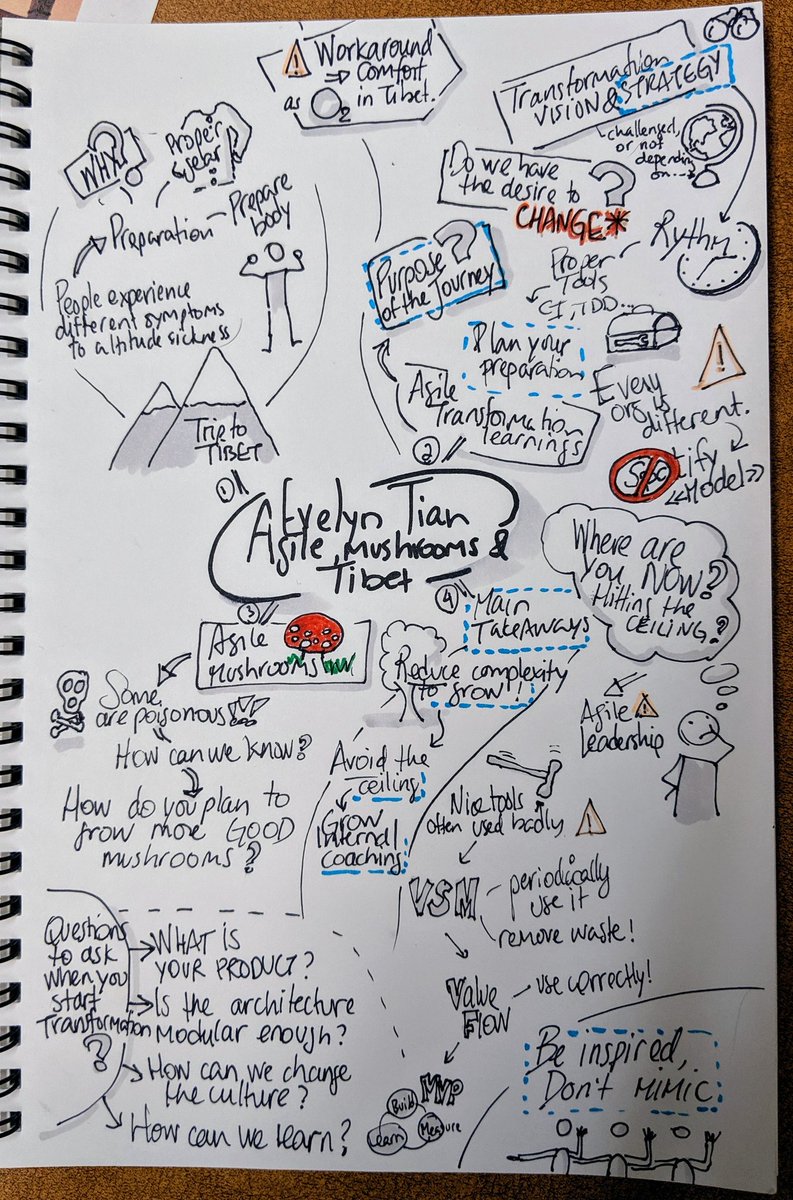 Evelyn Tian
Agile, Mushrooms &
Tibet
①
Trip to
TIBET
People experience
different symptoms
to altitude sickness
Preparation
Prepare
body
WHY?
Proper
gear?
! Workaround
⇒ Comfort
as O2 in Tibet.
②
Agile
Transformation
learnings
Purpose ?
of the Journey
Do we have
the desire to ?
CHANGE*
Transformation
VISION & STRATEGY
challenged,
or not
depending
on...
Rythm
Proper
Tools
CI, TDD...
Plan your
preparation
!
Every
org is
different.
Spotify
<<Model>>
③
Agile
Mushrooms
Some
are poisonous!!!
How can we know?
How do you plan to
grow more GOOD
mushrooms?
④
Main
TakeAways
Reduce complexity
to grow!
Avoid the
ceiling
Grow
Internal
coaching
Where are
you NOW?
Hitting the
CEILING?
Agile !
Leadership
Nice tools
often used badly !
VSM
periodically
use it
remove waste!
Value
Flow
use correctly!
MVP
Build
Measure
Learn
Questions
to ask
when you
start
Transformation
?
WHAT IS
YOUR PRODUCT?
Is the architecture
modular enough?
How can we change
the culture?
How can we learn?
Be inspired,
Don't MIMIC